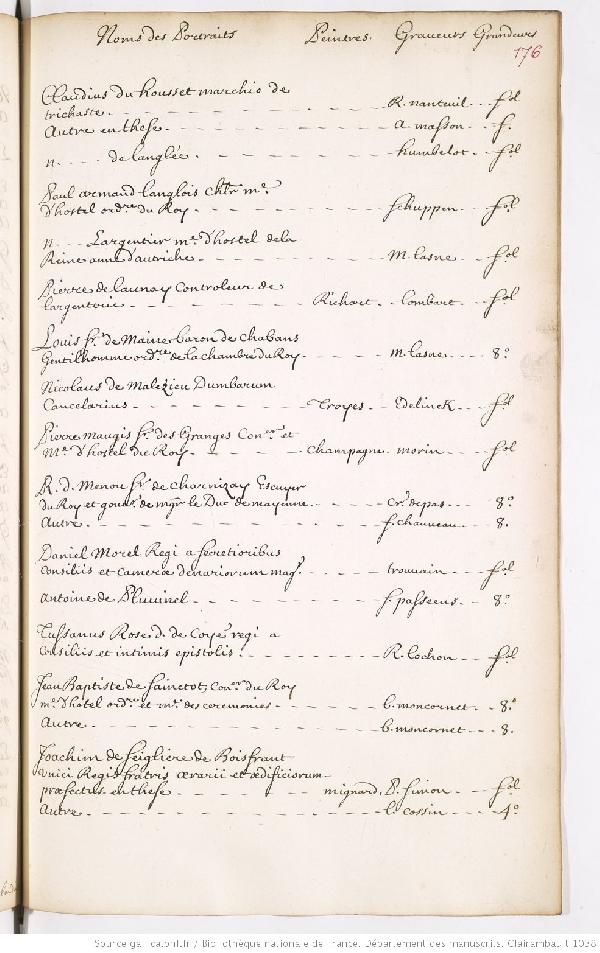 Noms des Portraits Peintres. Graveurs Grandeurs
176
Claudius du housset marchio de
trichaste - - - - - R. nanteuil - - fol
Autre en these - - - - - a. masson - - f.
n. . . . de langlée - - - - - humbelot - - fol
Paul armand langlois chlr me.
d'hostel ordre du Roy - - - - - schuppen - - fol
n. . . Largentier me. d'hostel dela
Reine anne d'autriche - - - - - M. lasne - - fol
Pierre de launay Controleur de
largenterie - - - - - Richart - Lombart - - fol
Louis sr. de Maine baron de Chabans
Gentilhomme ordre de la chambre du Roy - - - m. lasne - - 8o
Nicolaus de Malezieu Dumbarum
Cancelarius - - - - - Troyes - Edelinck - - fol
Pierre maugis sr. des Granges Coner et
Me. d'hostel du Roy - - - - - Champagne morin - - fol
R. d. Menou sr. de Charnizay Escuyer
du Roy et gouvr. de mgr le Duc de mayenne - - - Cr. de pas - - 8o
Autre - - - - - f. chauveau - - 8.
Daniel Morel Regi a secretioribus
consiliis et camerae denariorum mag. - - - trouvain - - fol
Antoine de Pluvinel - - - - - s. passeeus - - 8o
Tussanus Rose d. de Coye regi a
consiliis et intimis epistolis. - - - - - R. Lochon - - fol
Jean Baptiste de Sainctot, Coner. du Roy
me. d'hotel ordre et me. des ceremonies - - - b. moncornet - - 8o
Autre - - - - - b. moncornet - - 8.
Joachim de Seigliere de Boisfrant
unici Regis fratris aerarii et aedificiorum
praefectus. en these - - - - - mignard, P. simon - - fol
Autre - - - - - l. cossin - - 4o
Source gallica.bnf.fr / Bibliothèque nationale de France. Département des manuscrits. Clairambault 1038